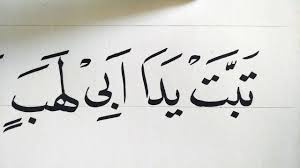 تَبَّتْ يَدَا اَبِيْ لَهَبٍ